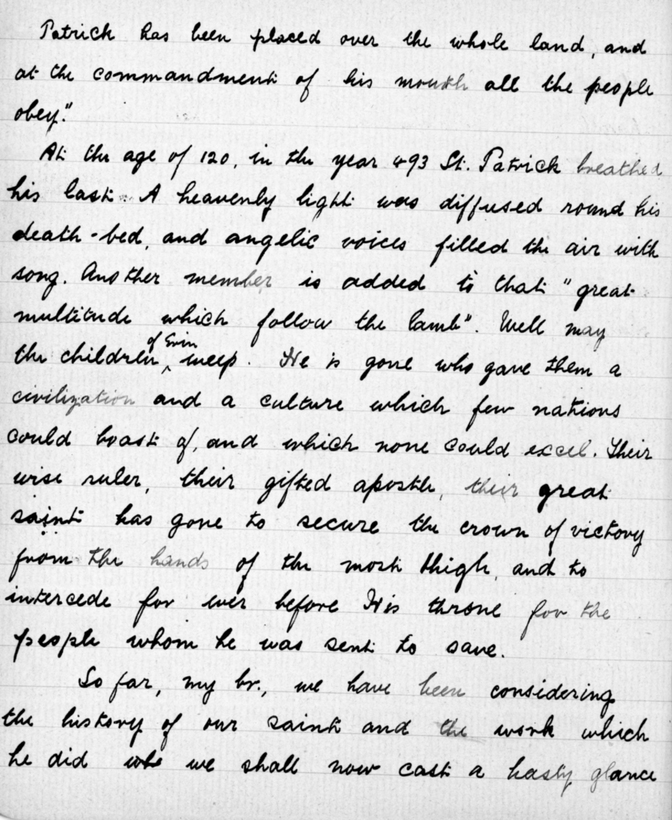 Patrick has been placed over the whole land, and
at the commandment of his mouth all the people
obey."
At the age of 120, in the year 493 St. Patrick breathed
his last. A heavenly light was diffused round his
death-bed, and angelic voices filled the air with
song. Another member is added to that "great
multitude which follow the lamb". Well may
of Erin
the children ^ weep. He is gone who gave them a
civilization and a culture which few nations
could boast of, and which none could excel. Their
wise ruler, their gifted apostle, their great
saint has gone to secure the crown of victory
from the hands of the most High, and to
intercede for ever before His throne for the
people whom he was sent to save.
So far, my br., we have been considering
the history of our saint and the work which
he did we shall now cast a hasty glance